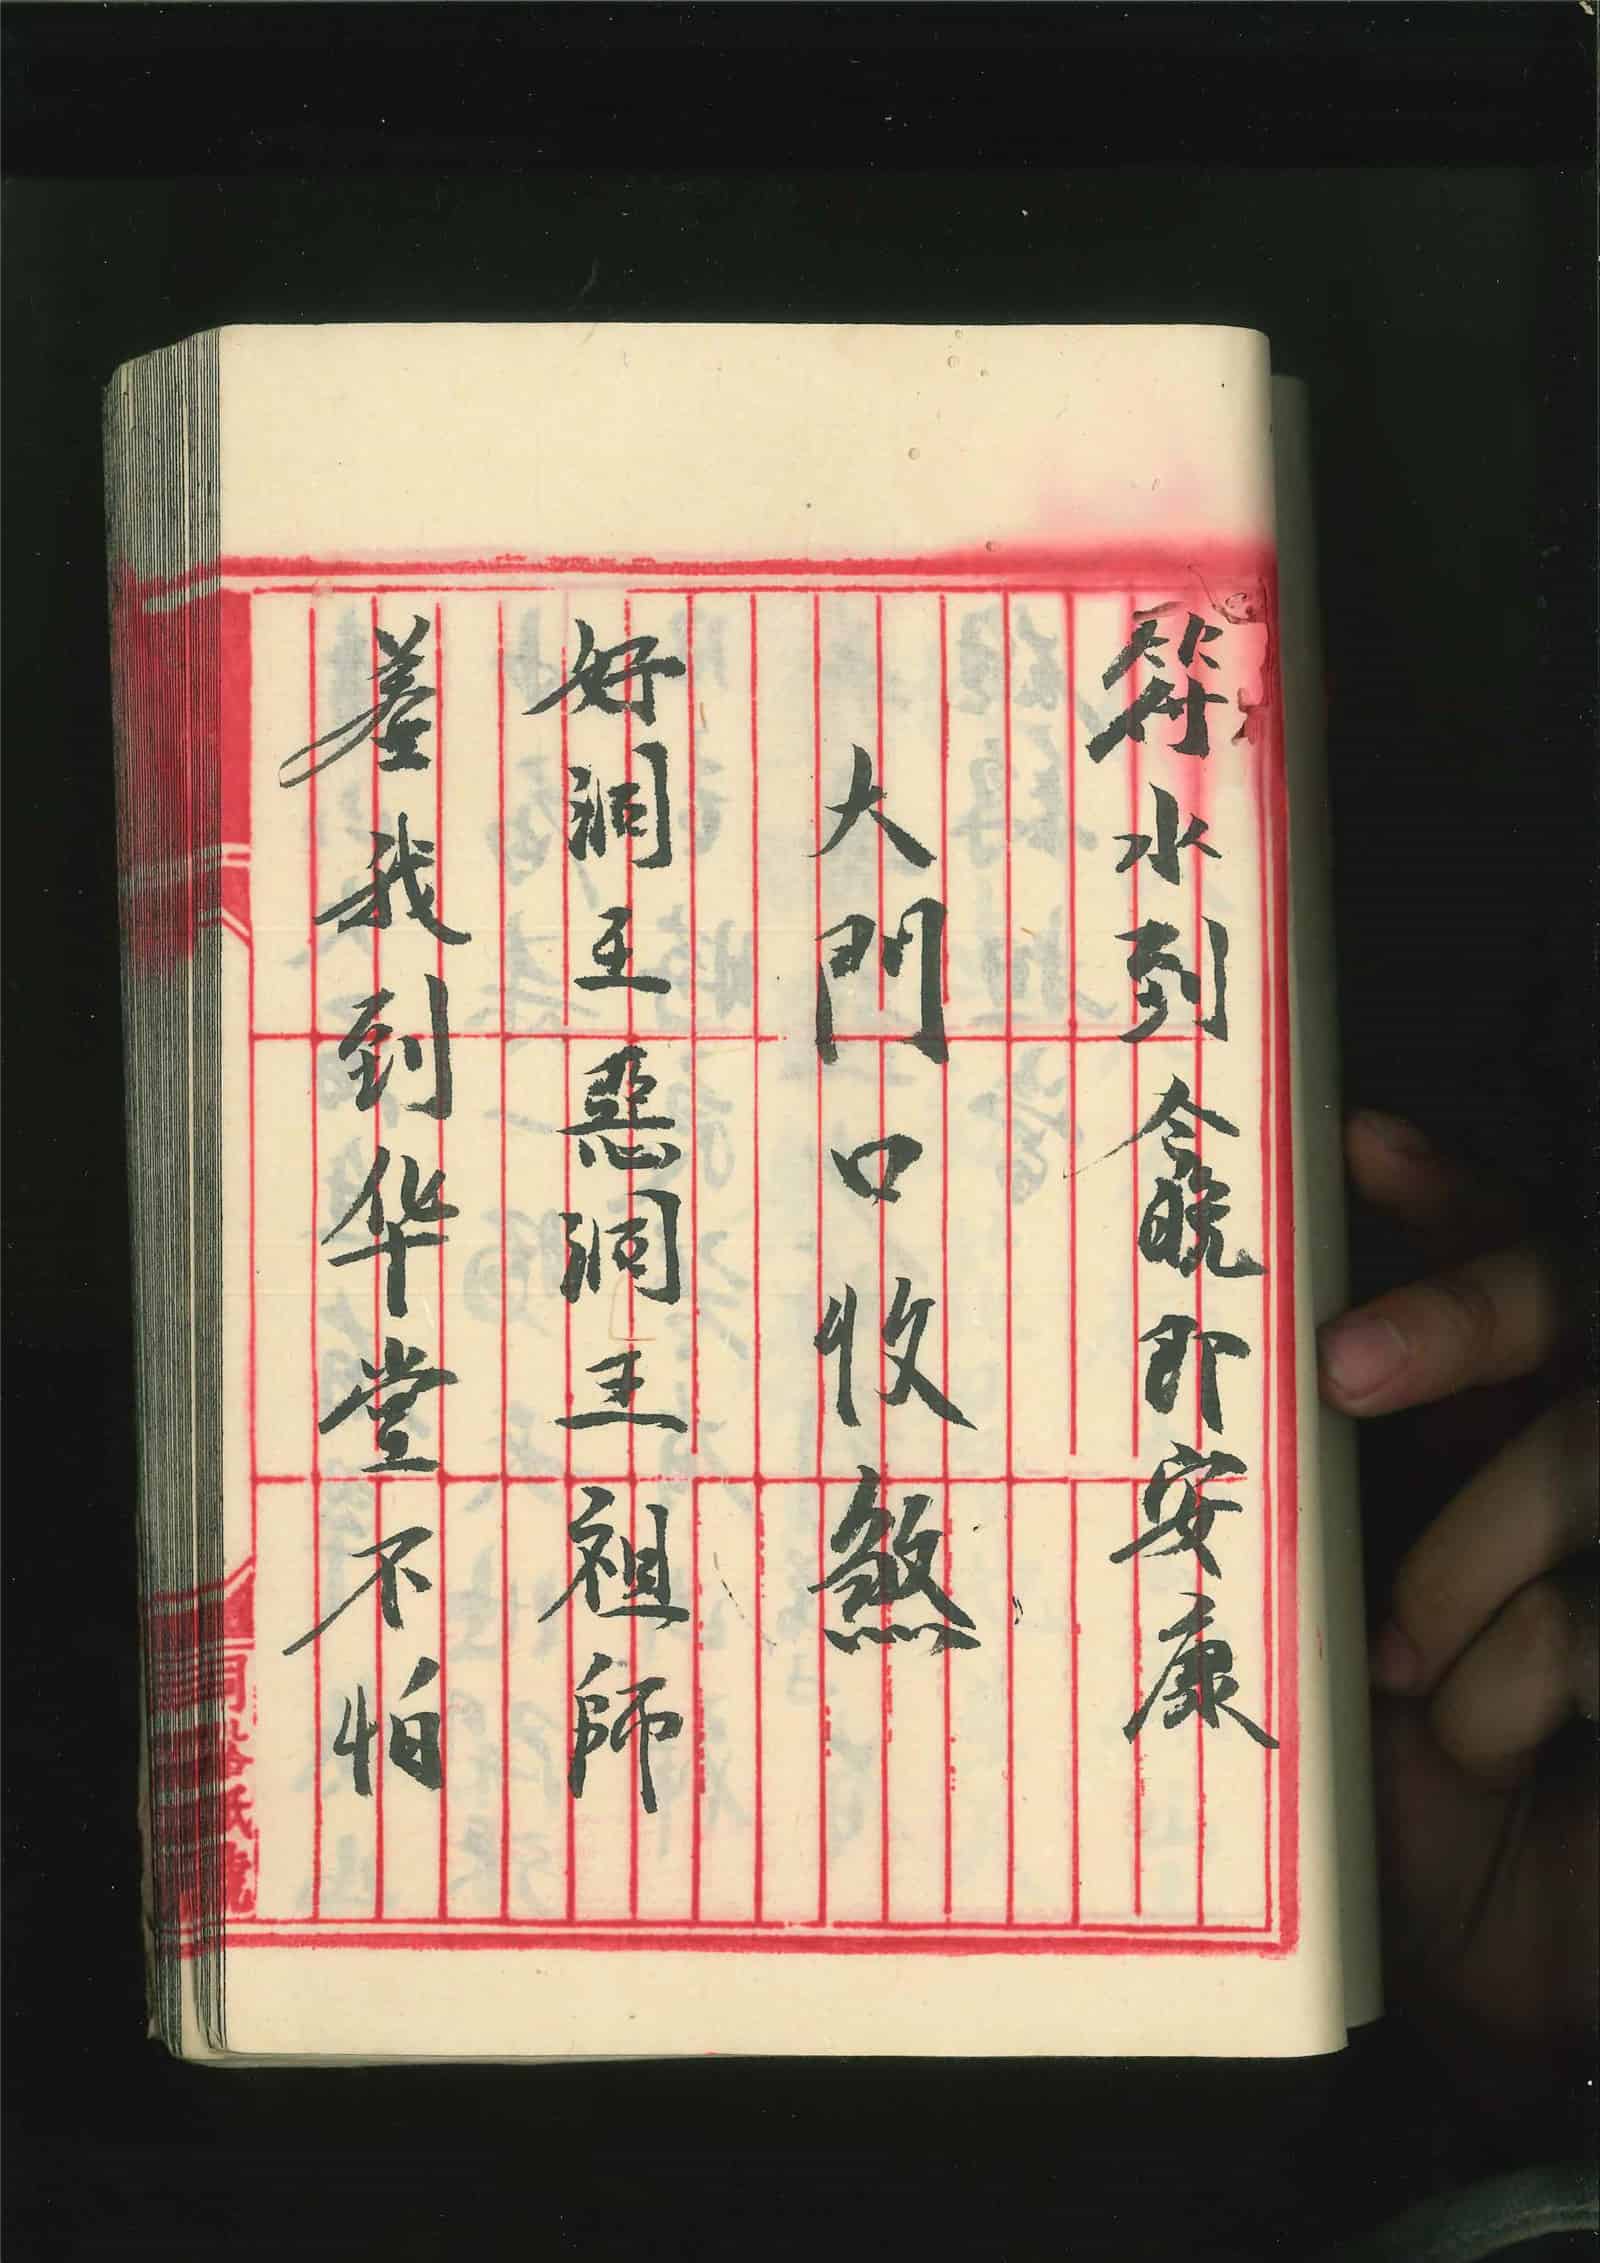 符水到今晚即安康
大門口收煞
好洞王惡洞王祖師
差我到华堂不怕